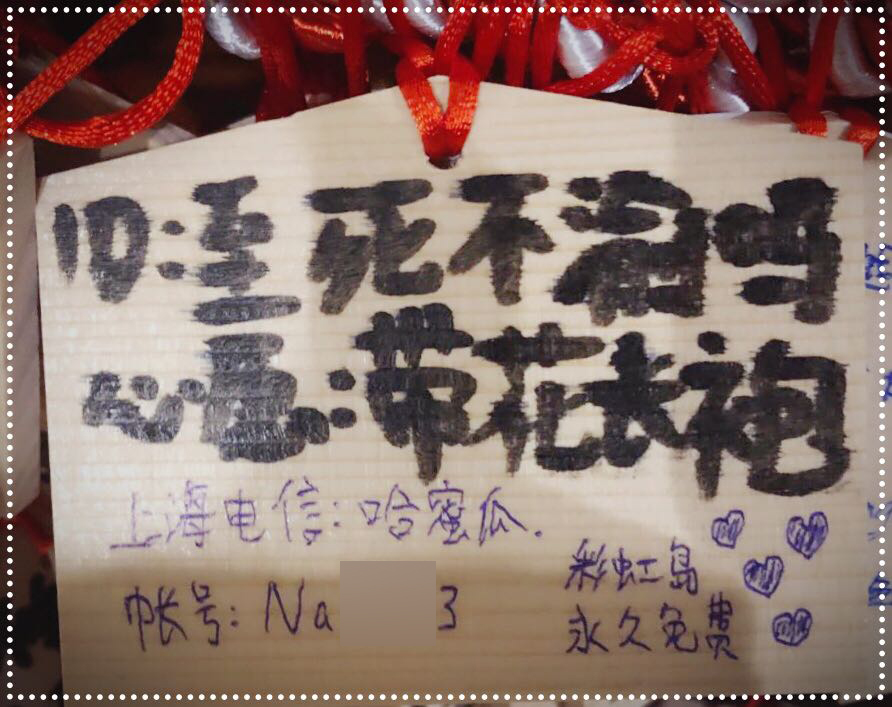 ID:至死不渝吗
心愿:带花长袍
上海电信:哈蜜瓜.
帐号:Na 3
彩虹岛
永久免费